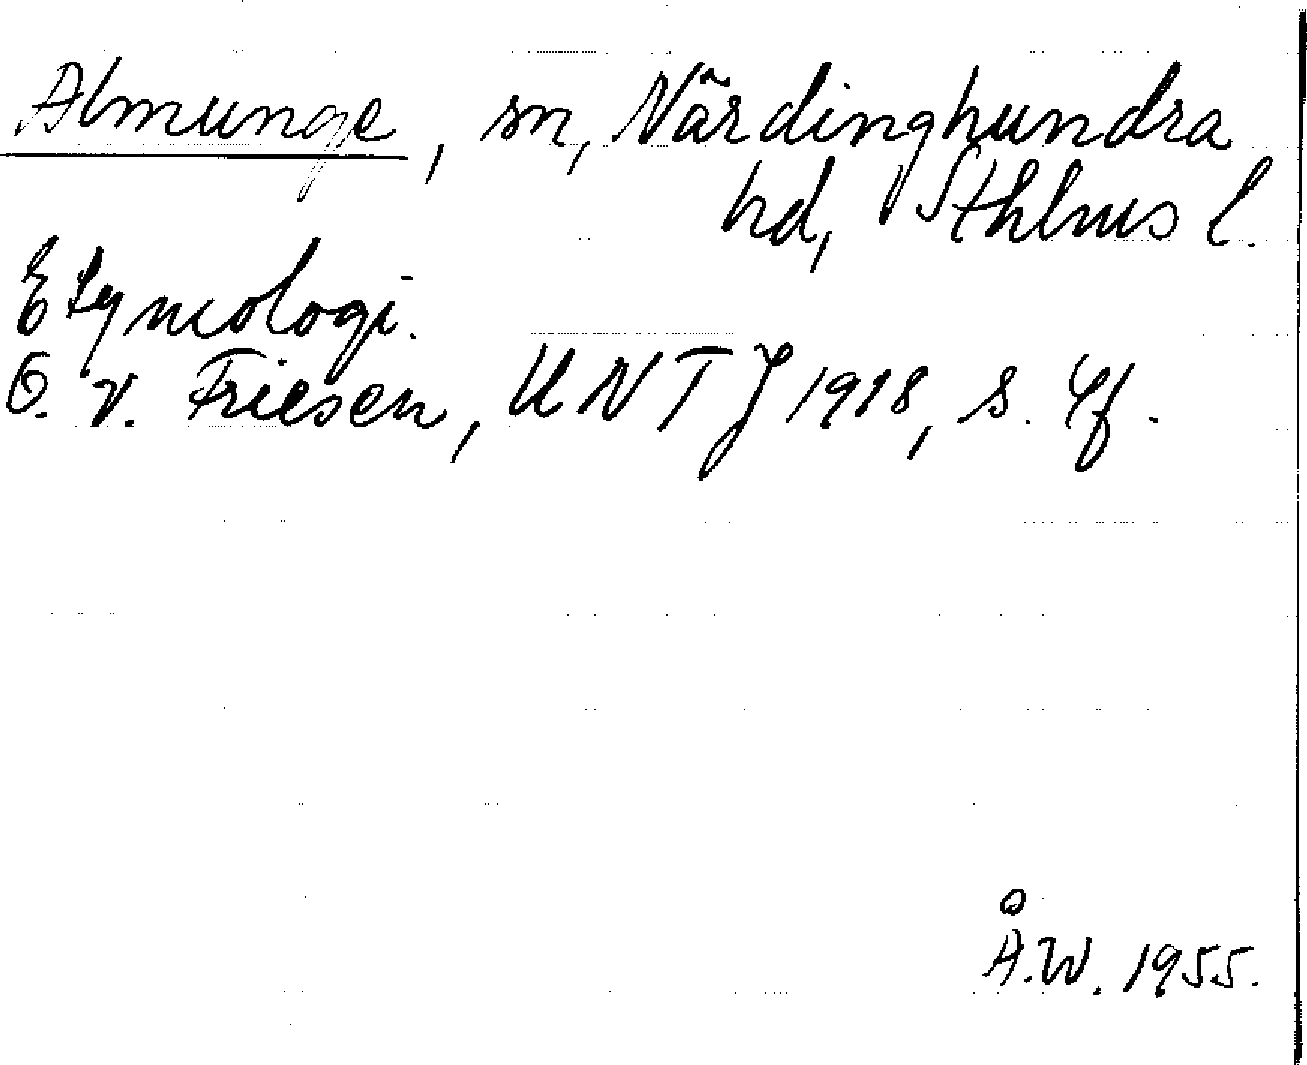 Almunge, sn, Närdinghundra
hd, Sthlms l.
Etymologi.
O. v. Friesen, UNTJ 1918, s. 4f.
Å.W. 1955.